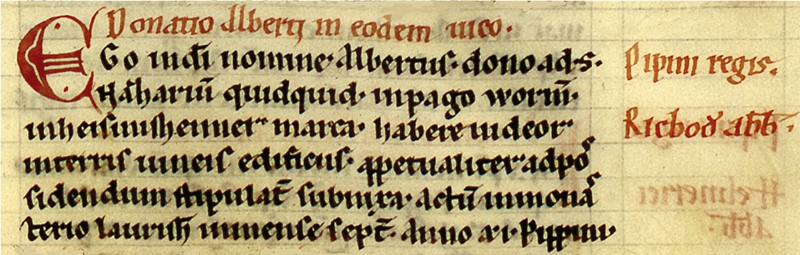 Donatio Alberti in eodem uico.
EGo in di nomine. Albertus. dono ad. s.
Nazharium quidquid. in pago worm.
in marca. habere uideor
in terris uineis edificiis. ppetualiter ad pos
sidendum stipulat subnixa. actu in monas
terio laurish mense sept. Anno xi. Pippini.
Pipini regis.
Richbod abb.